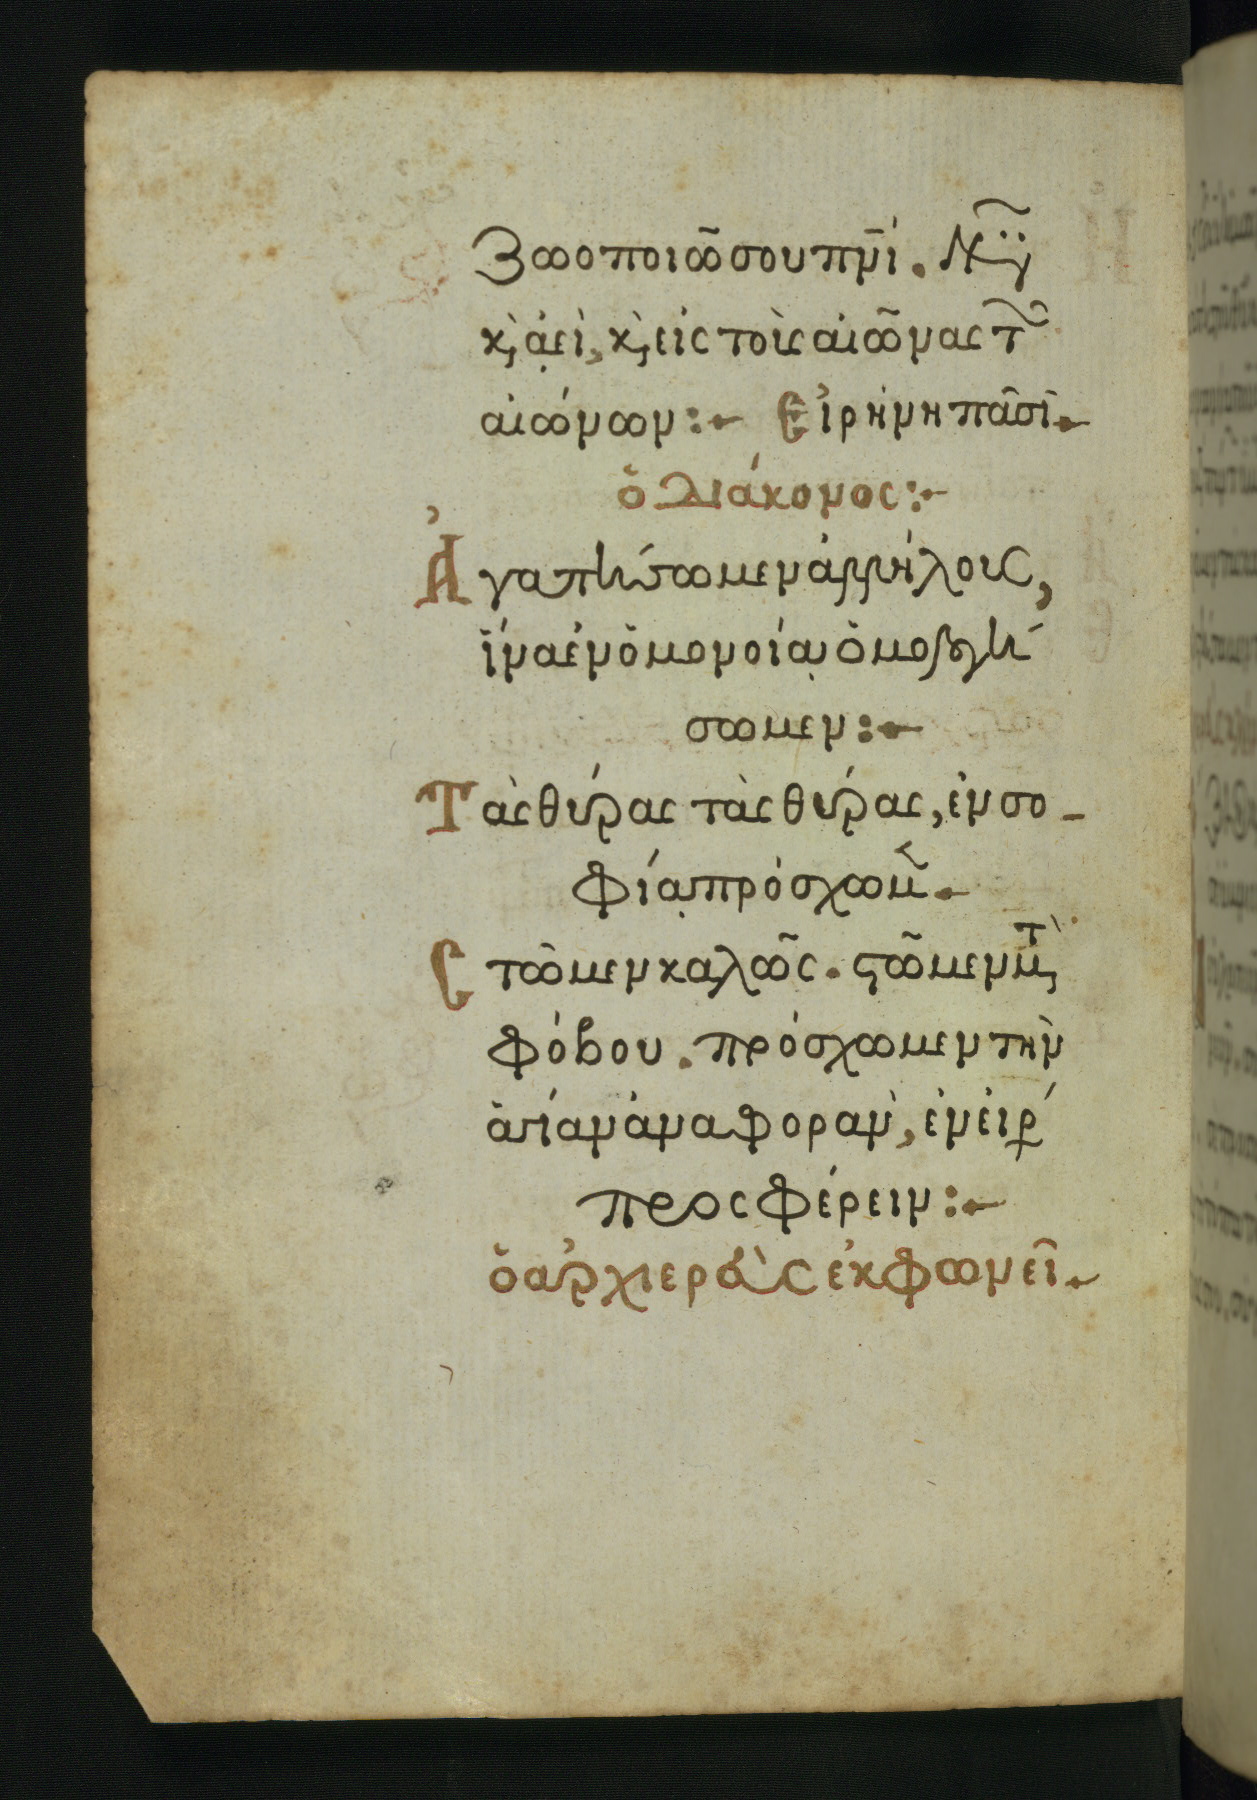 ζωοποιῶ σου πν̅ί. Νῦν
κ̀ ἀεὶ, κ̀ εἰς τοὺς αἰῶνας τ͂
αἰώνων:~ Εἰρήνη πᾶσι
ὁ διάκονος:~
Ἀγαπήσωμεν ἀλλήλους,
ἵνα ἐν ὁμονοίᾳ ὁμολογή
σωμεν:~
Τὰς θύρας τὰς θύρας, ἐν σο-
φίᾳ πρόσχωμ̃
Στῶμεν καλῶς. στῶμεν μτ̀
φόβου. πρόσχωμεν τὴν
ἁγίαν ἀναφορὰν, ἐν εἰρ́
προσφέρειν:~
ὁ ἀρχιερεὺς ἐκφωνεῖ